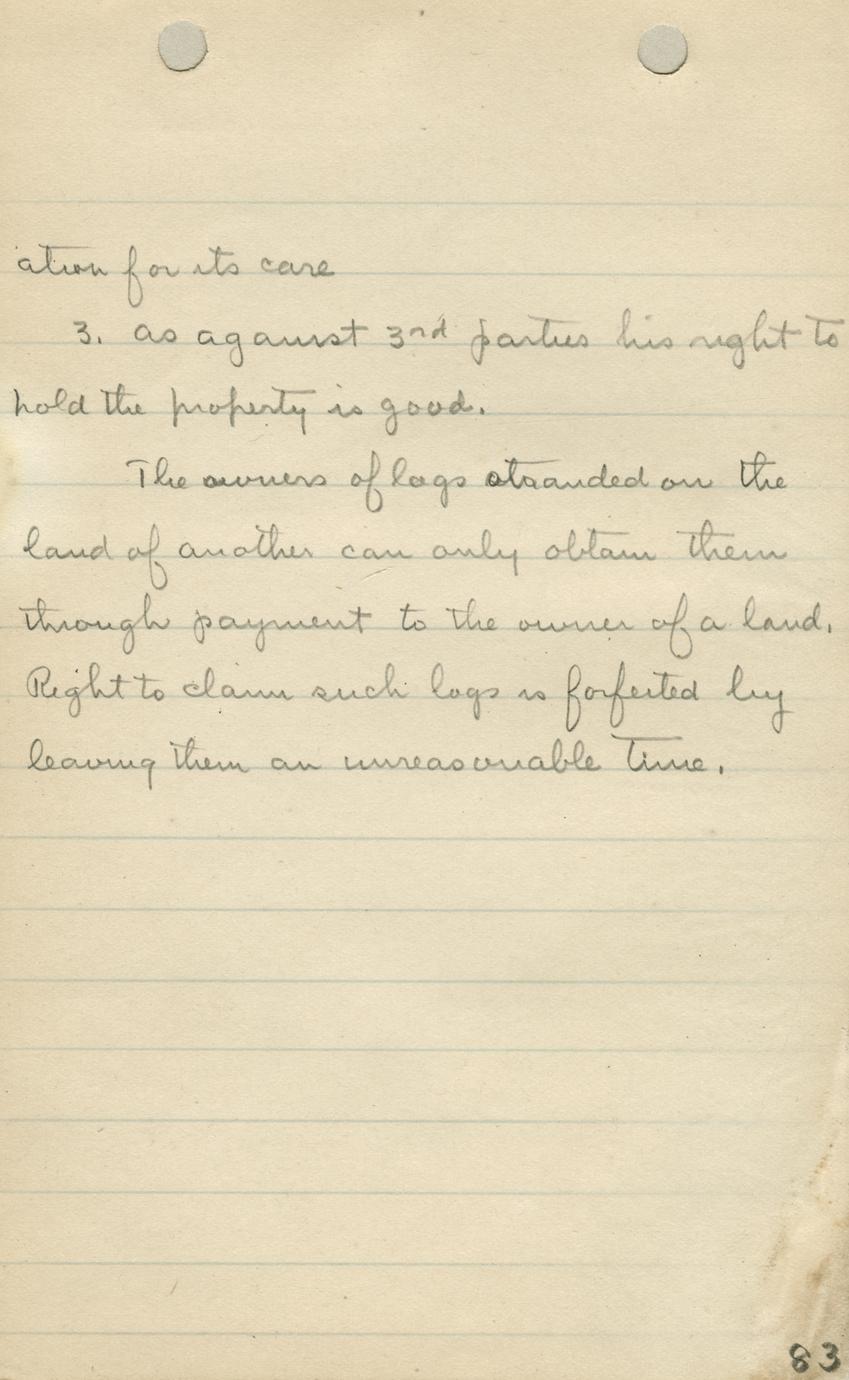 ation for its care
3. as against 3rd parties his right to
hold the property is good.
The owners of logs stranded on the
land of another can only obtain them
through payment to the owner of a land.
Right to claim such logs is forfeited by
leaving them an unreasonable time.
83